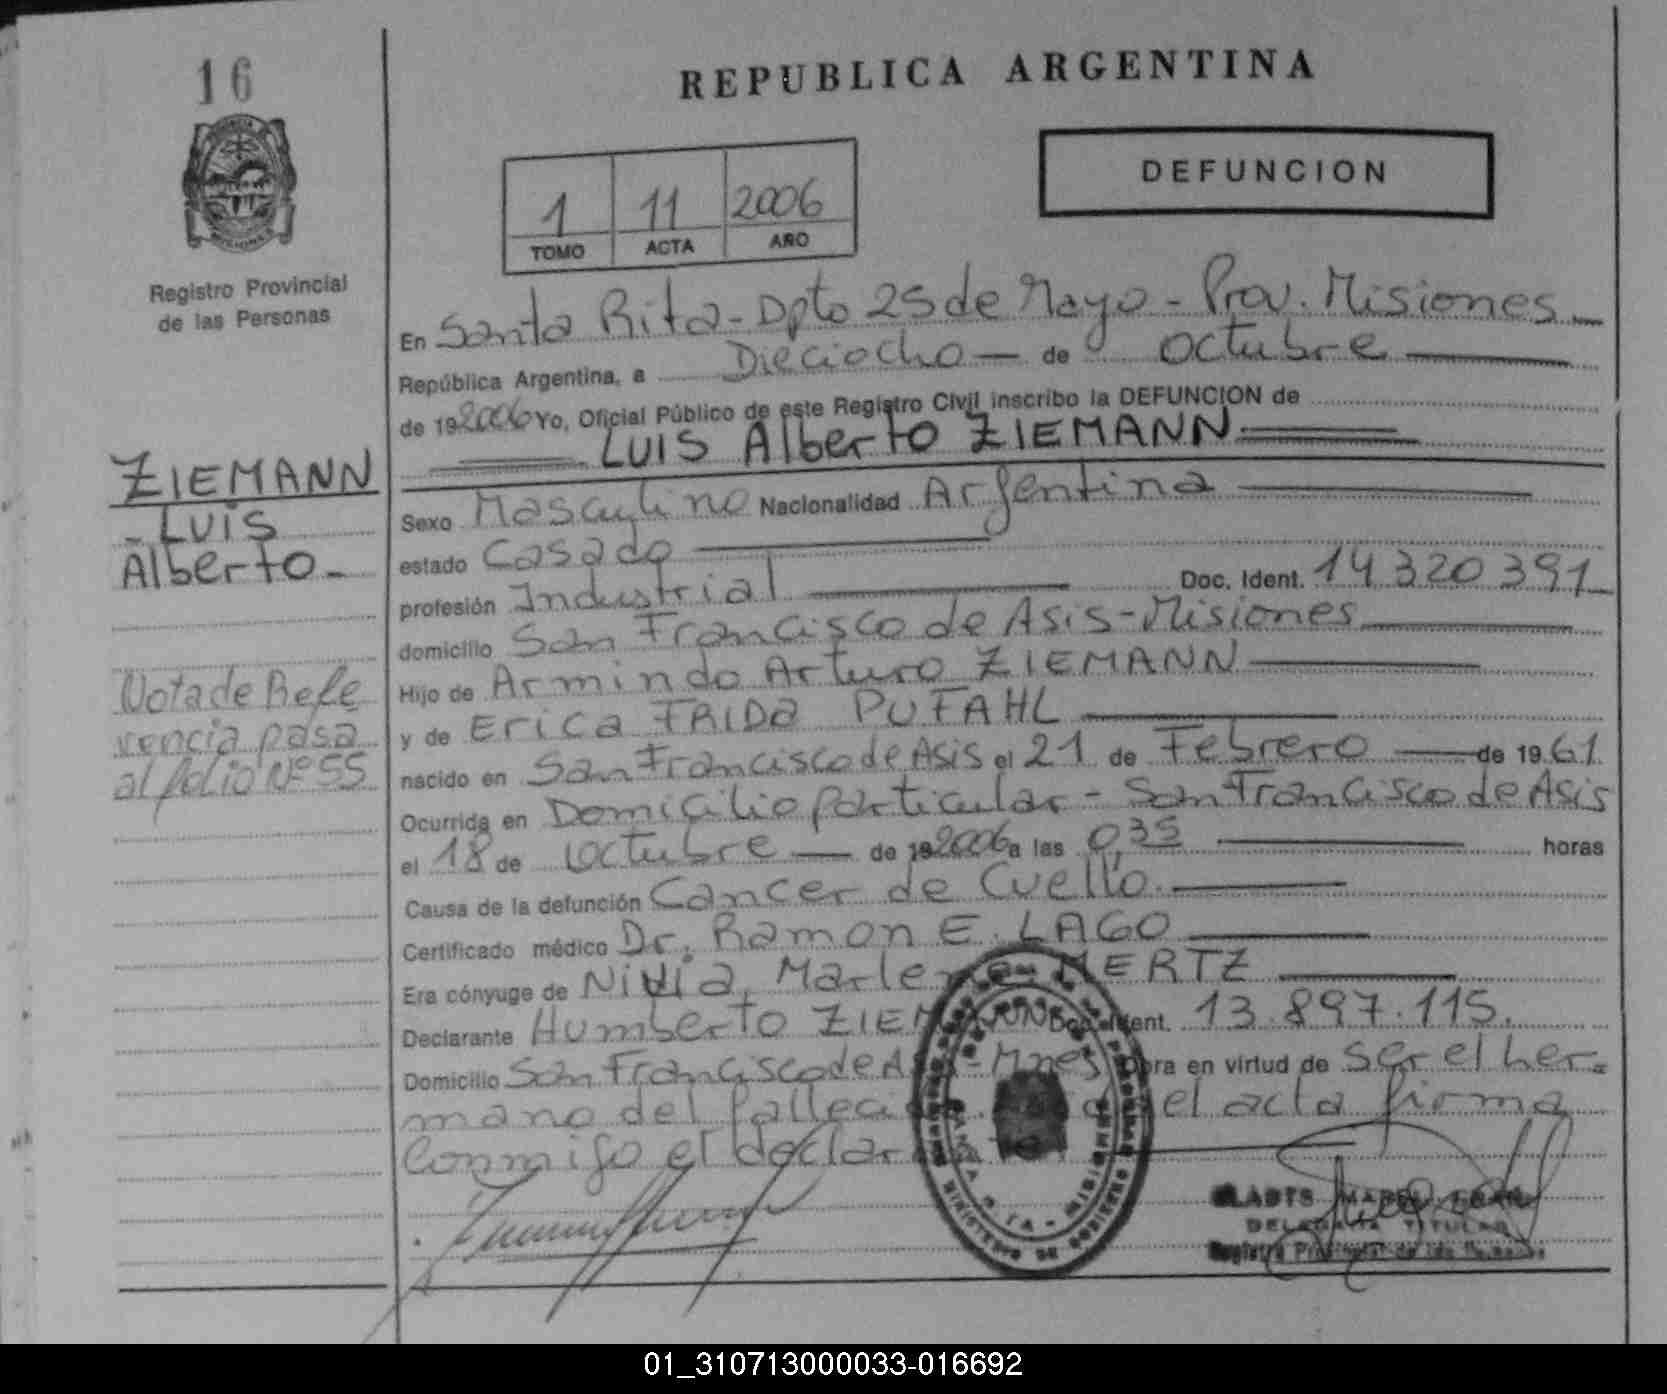 16
REPUBLICA ARGENTINA
DEFUNCION
1 11 2006
TOMO ACTA AÑO
Registro Provincial
de las Personas
En Santa Rita - Dpto 25 de Mayo - Prov. Misiones
República Argentina, a Dieciocho de Octubre
de 19 2006 Yo, Oficial Público de este Registro Civil inscribo la DEFUNCION de
LUIS Alberto ZIEMANN
ZIEMANN
- LUIS
Alberto -
Sexo Masculino Nacionalidad Argentina
estado Casado
profesión Industrial Doc. Ident. 14320391
domicilio San Francisco de Asis - Misiones
Hijo de Armindo Arturo ZIEMANN
y de Erica FRIDA PUFAHL
Nota de Refe
rencia pasa
al folio Nº 55
nacido en San Francisco de Asis el 21 de Febrero de 1961.
Ocurrida en Domicilio particular - San Francisco de Asis
el 18 de Octubre de 19 2006 a las 0,35 horas
Causa de la defunción Cancer de Cuello.
Certificado médico Dr. Ramon E. LAGO
Era cónyuge de Nivia Marlene MERTZ
Declarante Humberto ZIEMANN Doc. Ident. 13.897.115.
Domicilio San Francisco de Asis - Mnes Obra en virtud de ser el her-
mano del fallecido. el acta firma
Conmigo el declarante.
DELEGADA TITULAR
Registro Provincial de las Personas
MINISTERIO DE GOBIERNO
SANTA RITA - MISIONES
01_310713000033-016692